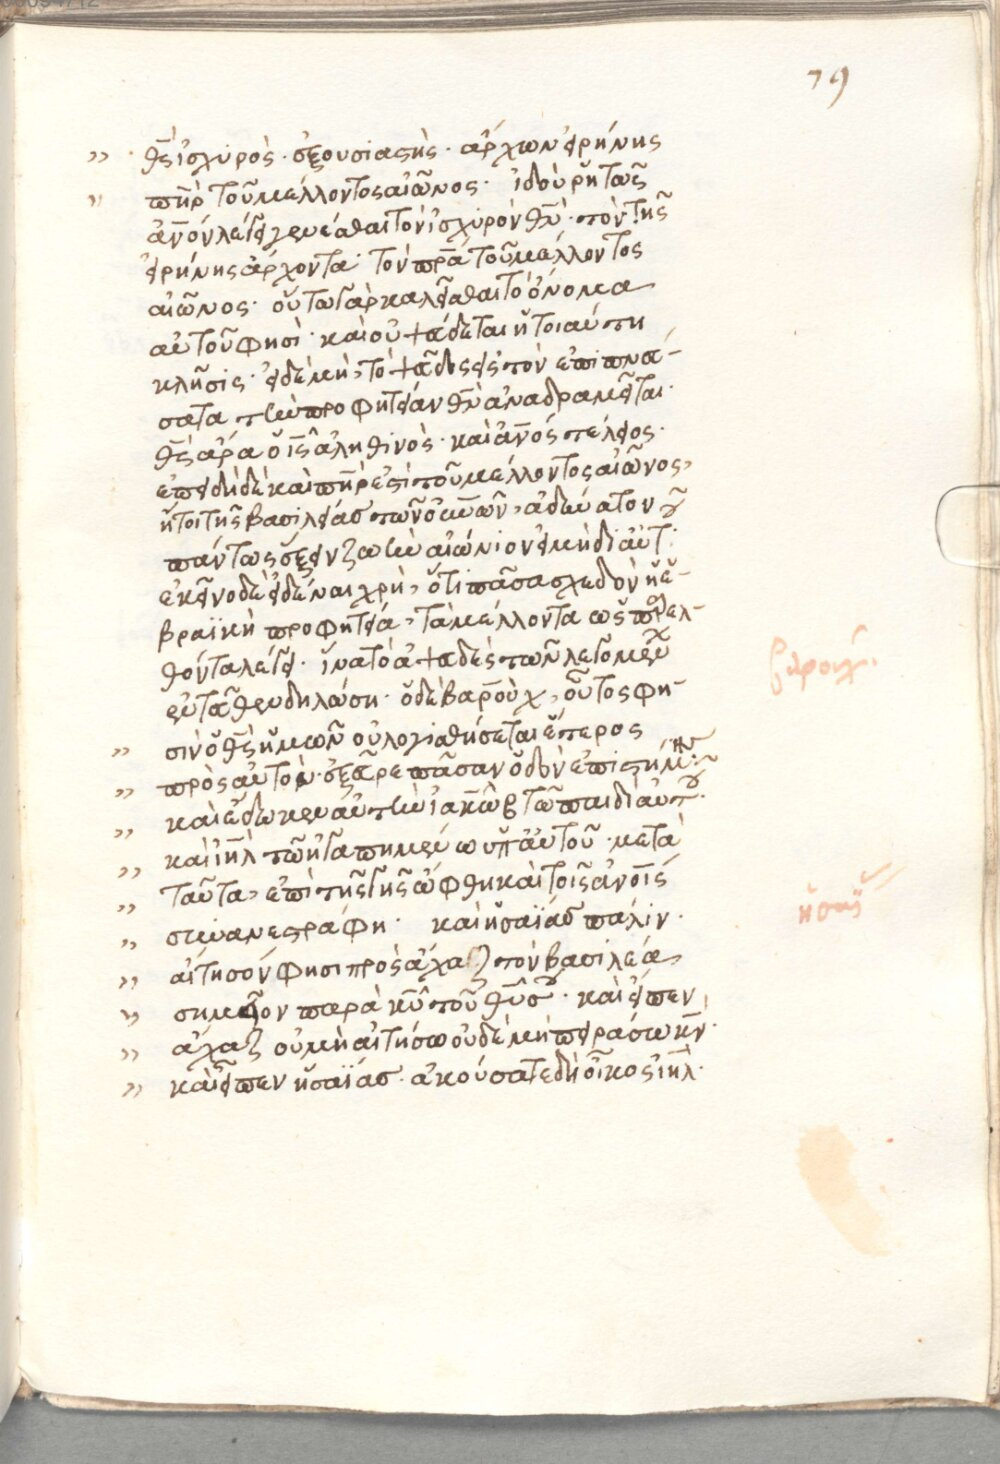 79
θς ἰσχυρὸς · ἐξουσιαστὴς · ἄρχων εἰρήνης
πηρ τοῦ μέλλοντος αἰῶνος · ἰδοὺ ῥητῶς
ἄνον λέγει γενέσθαι τὸν ἰσχυρὸν θν · τὸν τῆς
εἰρήνης ἄρχοντα · τὸν πρα τοῦ μέλλοντος
αἰῶνος · οὕτω γὰρ καλεῖσθαι τὸ ὄνομα
αὐτοῦ φησὶ · καὶ οὐ ψεύδεται ἡ τοιαύτη
κλῆσις · εἰ δὲ μὴ, τὸ ψεῦδος εἰς τὸν
τὴν προφητείαν θν ἀναδραμεῖται ·
θς ἄρα ὁ ις ἀληθινὸς · καὶ ἄνος τέλειος ·
ἐπειδὴ δὲ καὶ πηρ ἐστὶ τοῦ μέλλοντος αἰῶνος,
ἤτοι τῆς βασιλείας τῶν οὐνῶν, ἀδύνατον
πάντως ἕξειν ζωὴν αἰώνιον εἰ μὴ δι αὐτ
ἐκεῖνο δὲ εἰδέναι χρὴ, ὅτι πᾶσα σχεδὸν ἡ ἑ-
βραϊκὴ προφητεία, τὰ μέλλοντα ὡς παρελ-
θόντα λέγει · ἵνα τὸ ἀψευδὲς τῶν λεγομεν
ἐντεῦθεν δηλώση · ὁ δὲ βαροὺχ, οὗτος φη-
βαρούχ
σὶν ὁ θς ἡμῶν οὐ λογισθήσεται ἕτερος
πρὸς αὐτὸν · ἐξεῦρε πᾶσαν ὁδὸν ἐπιστήμης
καὶ ἔδωκεν αὐτὴν ἰακὼβ τῶ παιδὶ αὐτοῦ
καὶ ιηλ τῶ ἠγαπημένω ὑπ' αὐτοῦ · μετὰ
ταῦτα, ἐπὶ τῆς γῆς ὤφθη καὶ τοῖς ἀνοις
συνανεστράφη · καὶ ἡσαΐας πάλιν ·
ἡσαΐ
αἴτησόν φησι πρὸς ἄχαζ τὸν βασιλέα,
σημεῖον παρὰ κυ τοῦ θυ σου · καὶ εἶπεν
ἄχαζ οὐ μὴ αἰτήσω οὐδὲ μὴ πειράσω κν ·
καὶ εἶπεν ἡσαΐας · ἀκούσατε δὴ οἶκος ιηλ ·